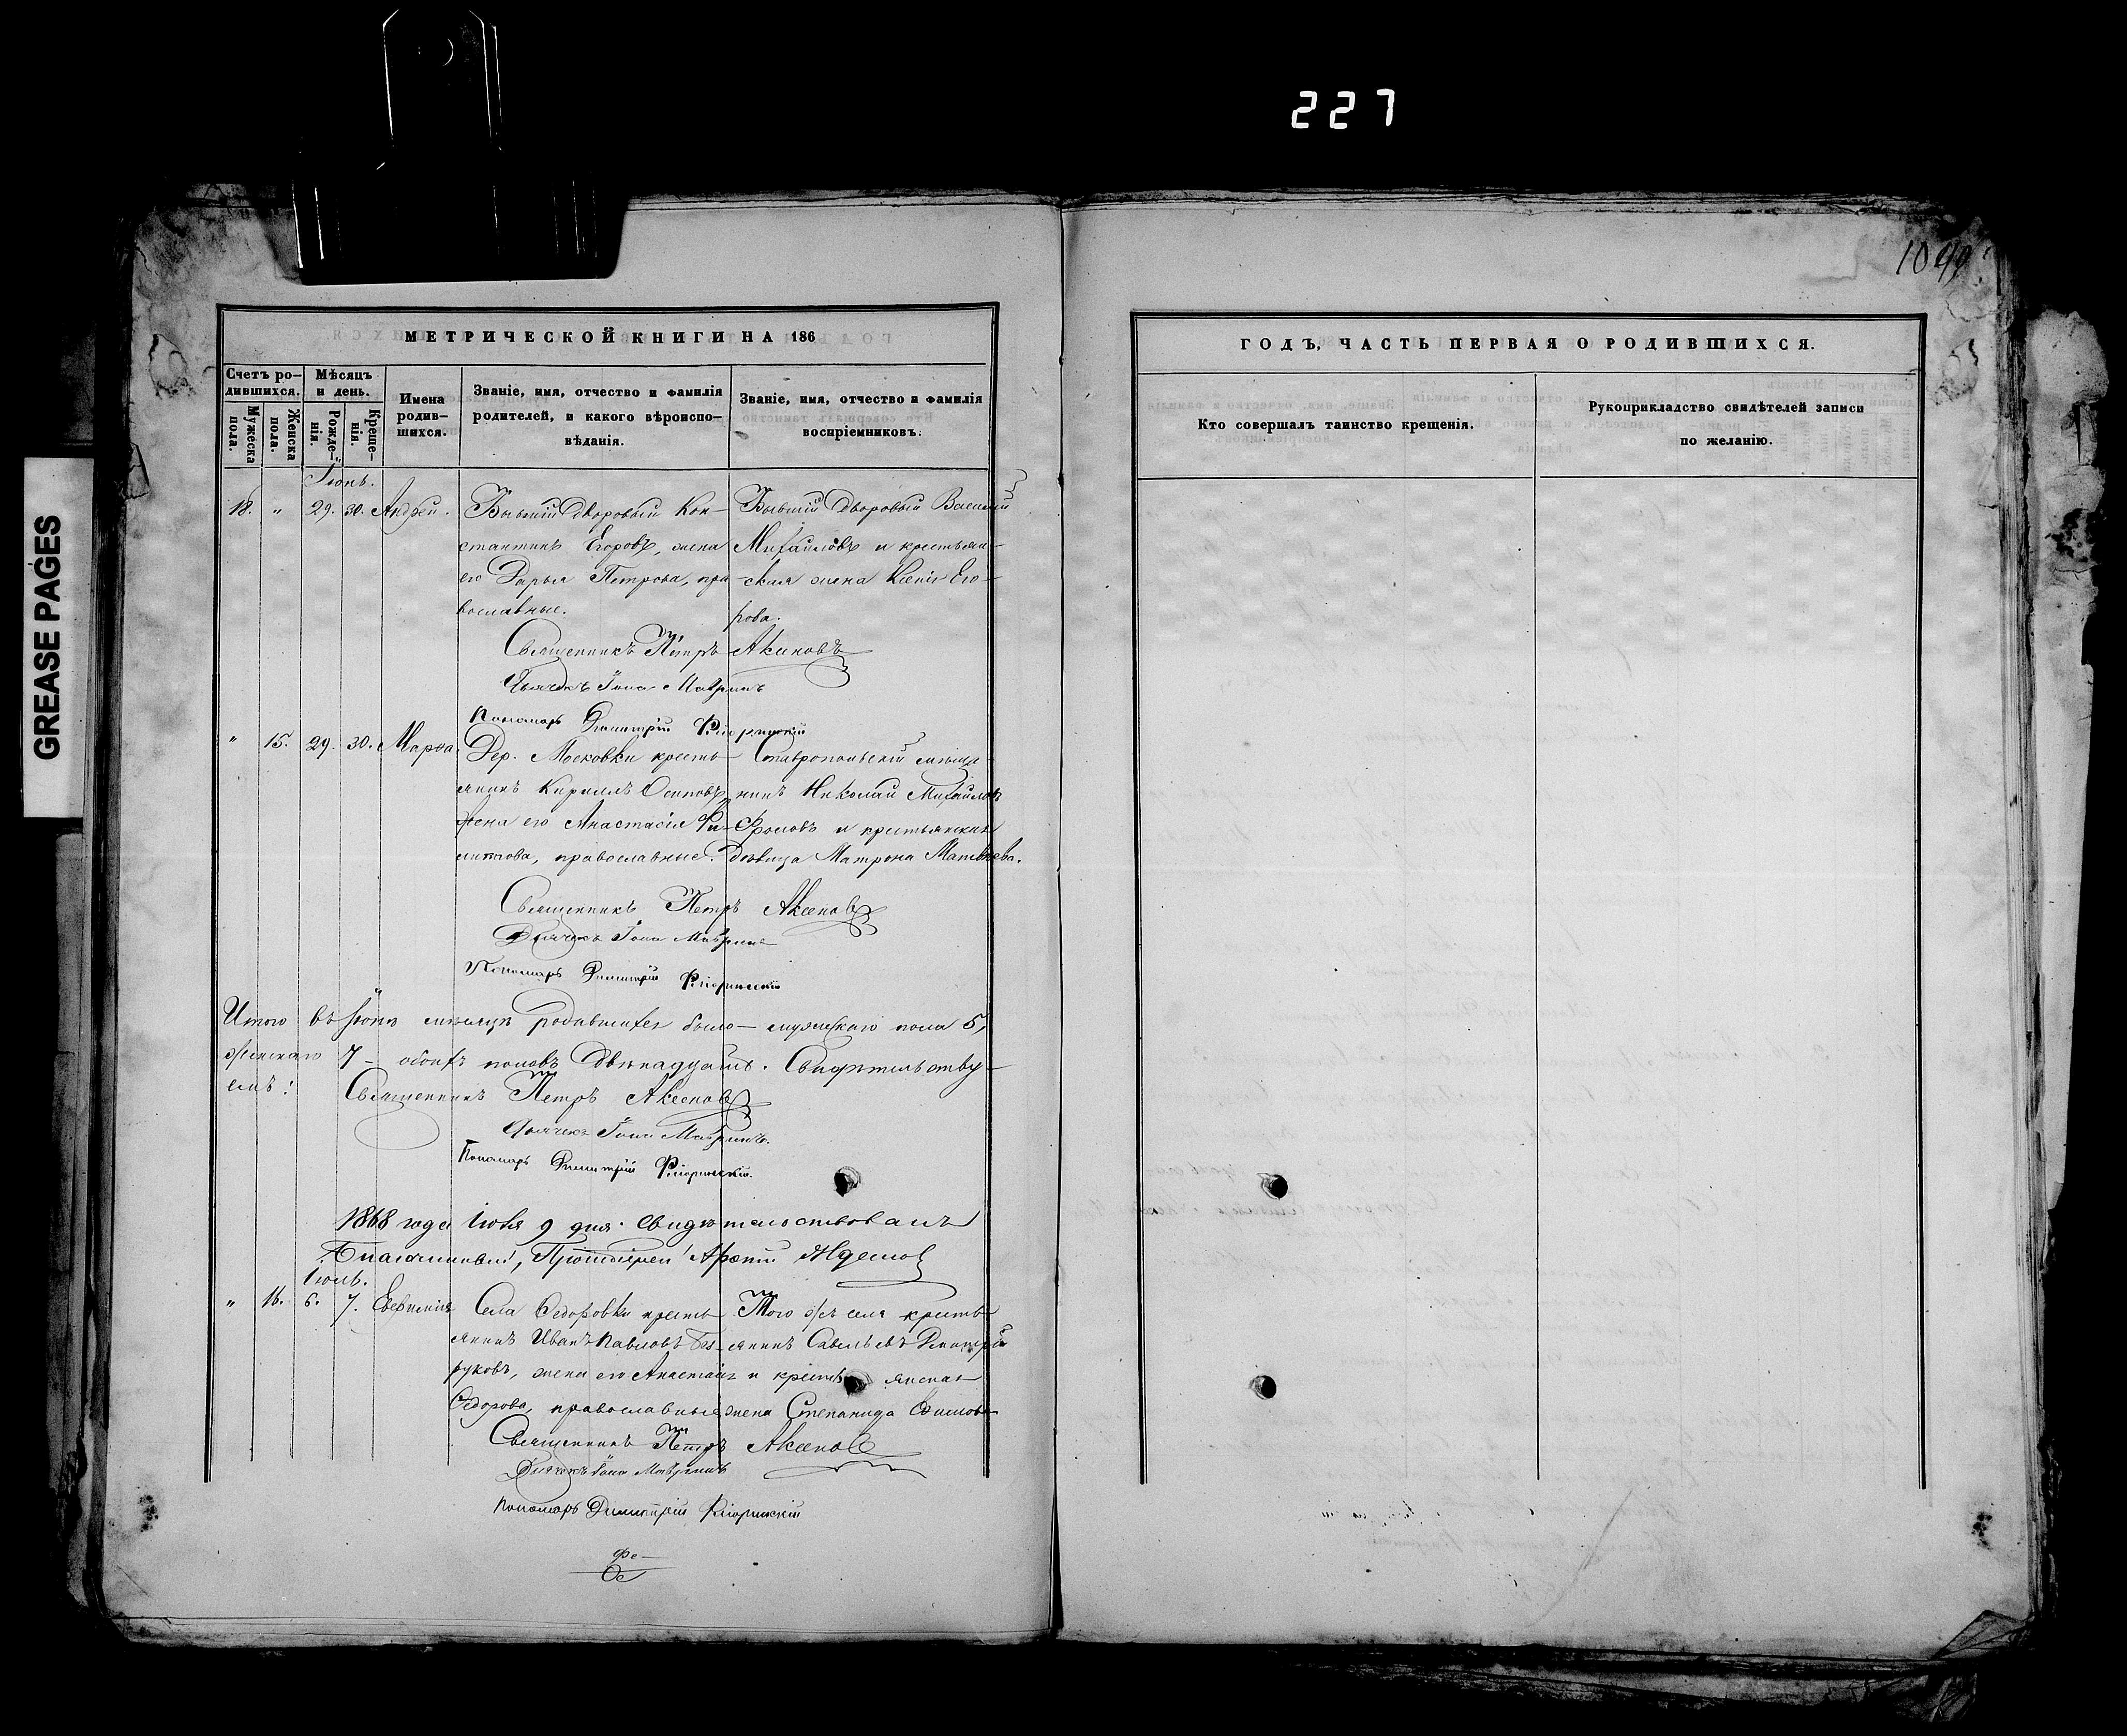 227
GREASE PAGES
1099
МЕТРИЧЕСКОЙ КНИГИ НА 186
Счетъ ро-
дившихся.
Мужеска
пола.
Женска
пола.
Мѣсяцъ
и день.
Рожде-
нія.
Креще-
нія.
Имена
родив-
шихся.
Званіе, имя, отчество и фамилія
родителей, и какого вѣроиспо-
вѣданія.
Званіе, имя, отчество и фамилія
воспріемниковъ.
Іюнь.
18. " 29. 30. Андрей.
Бывшій дворовый Кон-
стантинъ Егоровъ, жена
его Дарья Петрова, пра-
вославные.
Бывшій дворовый Василій
Михайловъ и крестьян-
ская жена Ксенія Его-
рова.
Священникъ Петръ Аксеновъ
Дьячекъ Іона Мавринъ
Пономарь Димитрій
" 15. 29. 30. Марѳа.
Дер. Московки кресть-
янинъ Кириллъ Осиповъ,
жена его Анастасія Фи-
липпова, православные.
Ставропольскій мѣща-
нинъ Николай Михайловъ
Фроловъ и крестьянская
дѣвица Матрона Матвѣева.
Священникъ Петръ Аксеновъ
Дьячекъ Іона Мавринъ
Пономарь Димитрій
Итого въ Іюнѣ мѣсяцѣ родившихся было – мужскаго пола 5,
женскаго 7 – обоихъ половъ двѣнадцать. Свидѣтельству-
емъ: Священникъ Петръ Аксеновъ
Дьячекъ Іона Мавринъ.
Пономарь Димитрій
1868 года Іюля 9 дня. Свидѣтельствовалъ
Благочинный, Протоіерей
Іюль.
" 16. 6. 7. Евфимія
Села Ѳедоровки кресть-
янинъ Иванъ Павловъ Без-
руковъ, жена его Анастасія
Ѳедорова, православные
Того же села кресть-
янинъ Савельевъ Димитрій
и крестьянская
жена Степанида
Священникъ Петръ Аксеновъ
Дьячекъ Іона Мавринъ
Пономарь Димитрій
ГОДЪ, ЧАСТЬ ПЕРВАЯ О РОДИВШИХСЯ.
Кто совершалъ таинство крещенія.
Рукоприкладство свидѣтелей записи
по желанію.